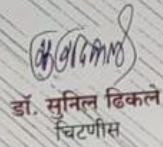 डॉ. सुनिल ढिकले
चिटणीस